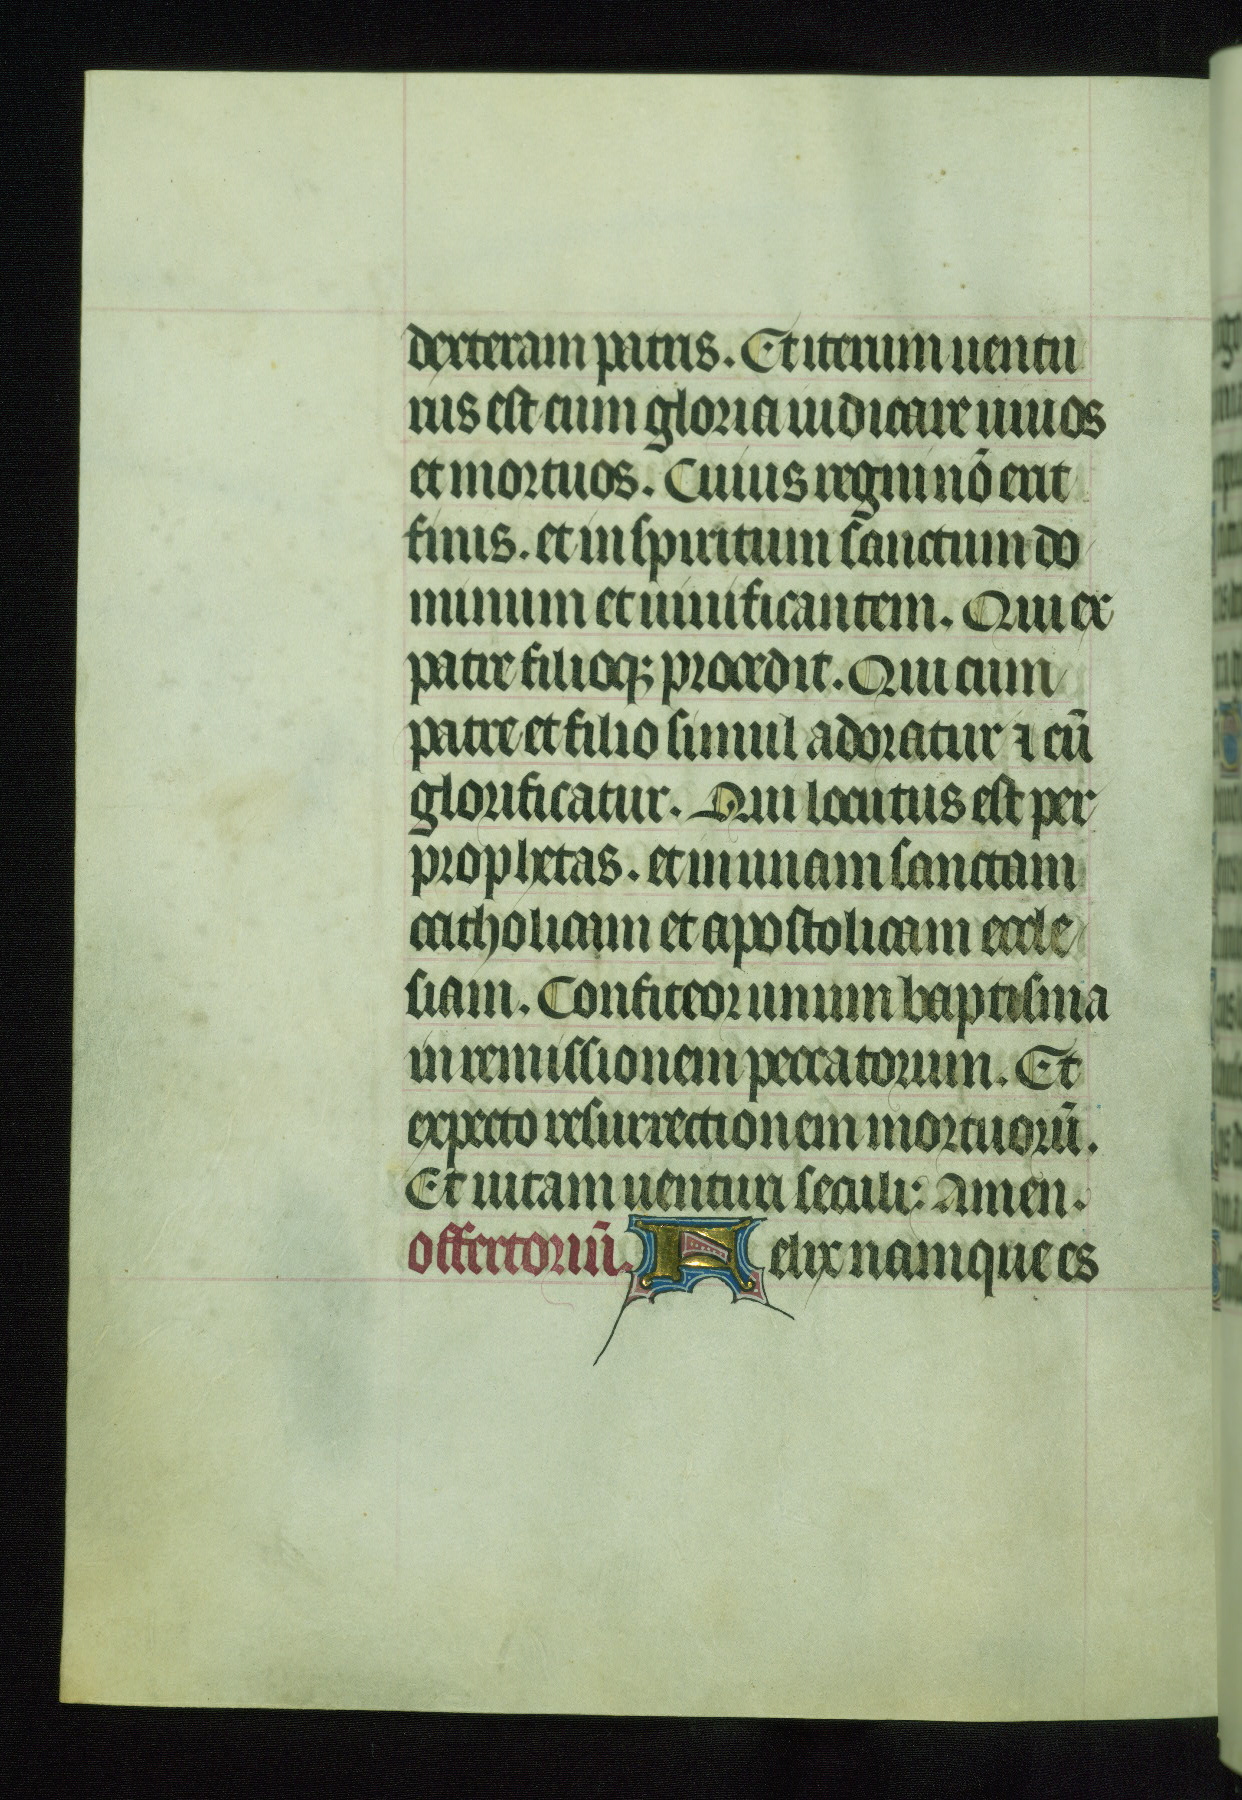 dexteram patris. Et iterum uentu
rus est cum gloria iudicare uiuos
et mortuos. Cuius regni nō erit
finis. et in spiritum sanctum do
minum et uiuificantem. Qui ex
patre filioqꝫ procedit. Qui cum
patre et filio simul adoratur ⁊ cū
glorificatur. Qui locutus est per
prophetas. et in unam sanctam
catholicam et apostolicam eccle
siam. Confiteor unum baptisma
in remissionem peccatorum. Et
expecto resurrectionem mortuorū.
Et uitam uenturi seculi: Amen.
offertoriū. Felix namque es